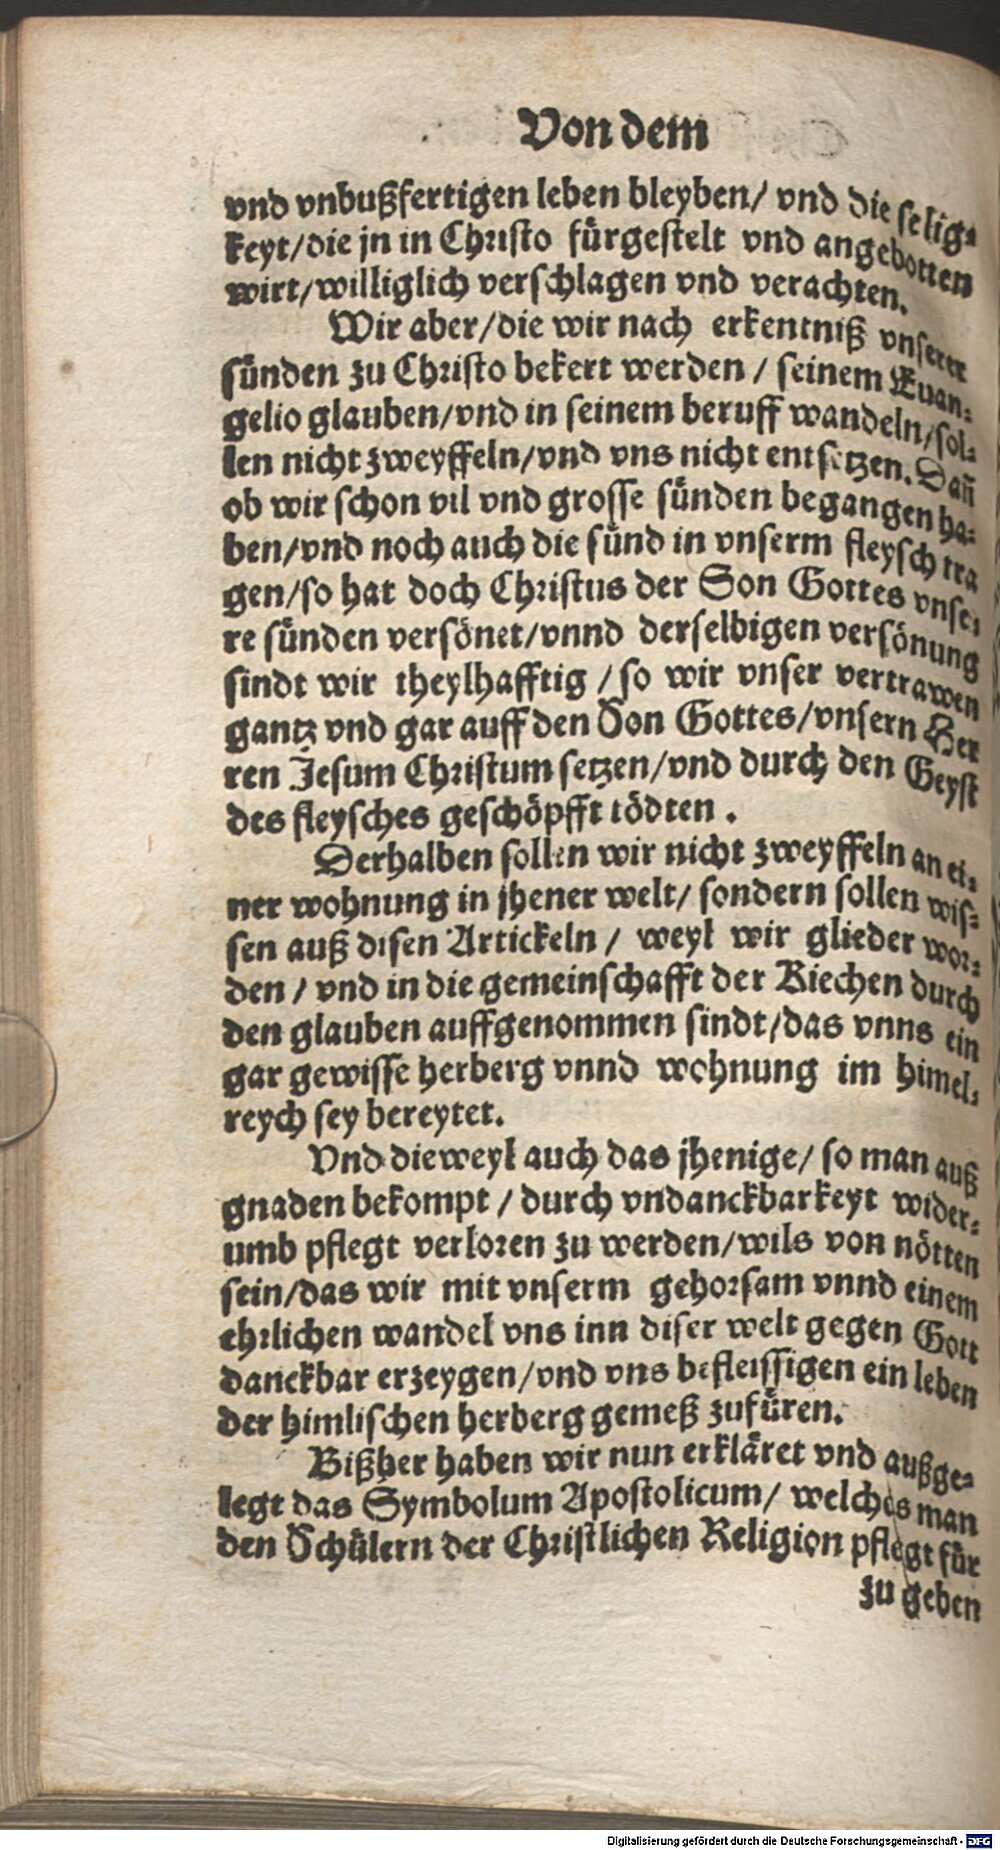 Von dem
vnd vnbußfertigen leben bleyben/ vnd die selig-
keyt/die jn in Christo fürgestelt vnd angebotten
wirt/williglich verschlagen vnd verachten.
Wir aber/die wir nach erkentniß vnserer
sünden zu Christo bekert werden / seinem Euan-
gelio glauben/vnd in seinem beruff wandeln/sol-
len nicht zweyffeln/vnd vns nicht entsetzen. Dañ
ob wir schon vil vnd grosse sünden begangen ha-
ben/vnd noch auch die sünd in vnserm fleysch tra
gen/so hat doch Christus der Son Gottes vnse-
re sünden versönet/vnnd derselbigen versönung
sindt wir theylhafftig / so wir vnser vertrawen
gantz vnd gar auff den Son Gottes/vnsern Her
ren Jesum Christum setzen/vnd durch den Geyst
des fleysches geschöpfft tödten .
Derhalben sollen wir nicht zweyffeln an ei-
ner wohnung in jhener welt/ sondern sollen wis-
sen auß disen Artickeln / weyl wir glieder wor-
den / vnd in die gemeinschafft der Kiechen durch
den glauben auffgenommen sindt/das vnns ein
gar gewisse herberg vnnd wohnung im himel-
reych sey bereytet.
Vnd dieweyl auch das jhenige/ so man auß
gnaden bekompt / durch vndanckbarkeyt wider-
umb pflegt verloren zu werden/wils von nötten
sein/das wir mit vnserm gehorsam vnnd einem
ehrlichen wandel vns inn diser welt gegen Gott
danckbar erzeygen/vnd vns befleissigen ein leben
der himlischen herberg gemeß zufüren.
Bißher haben wir nun erkläret vnd außge-
legt das Symbolum Apostolicum/ welches man
den Schülern der Christlichen Religion pflegt für
zu geben
Digitalisierung gefördert durch die Deutsche Forschungsgemeinschaft - DFG